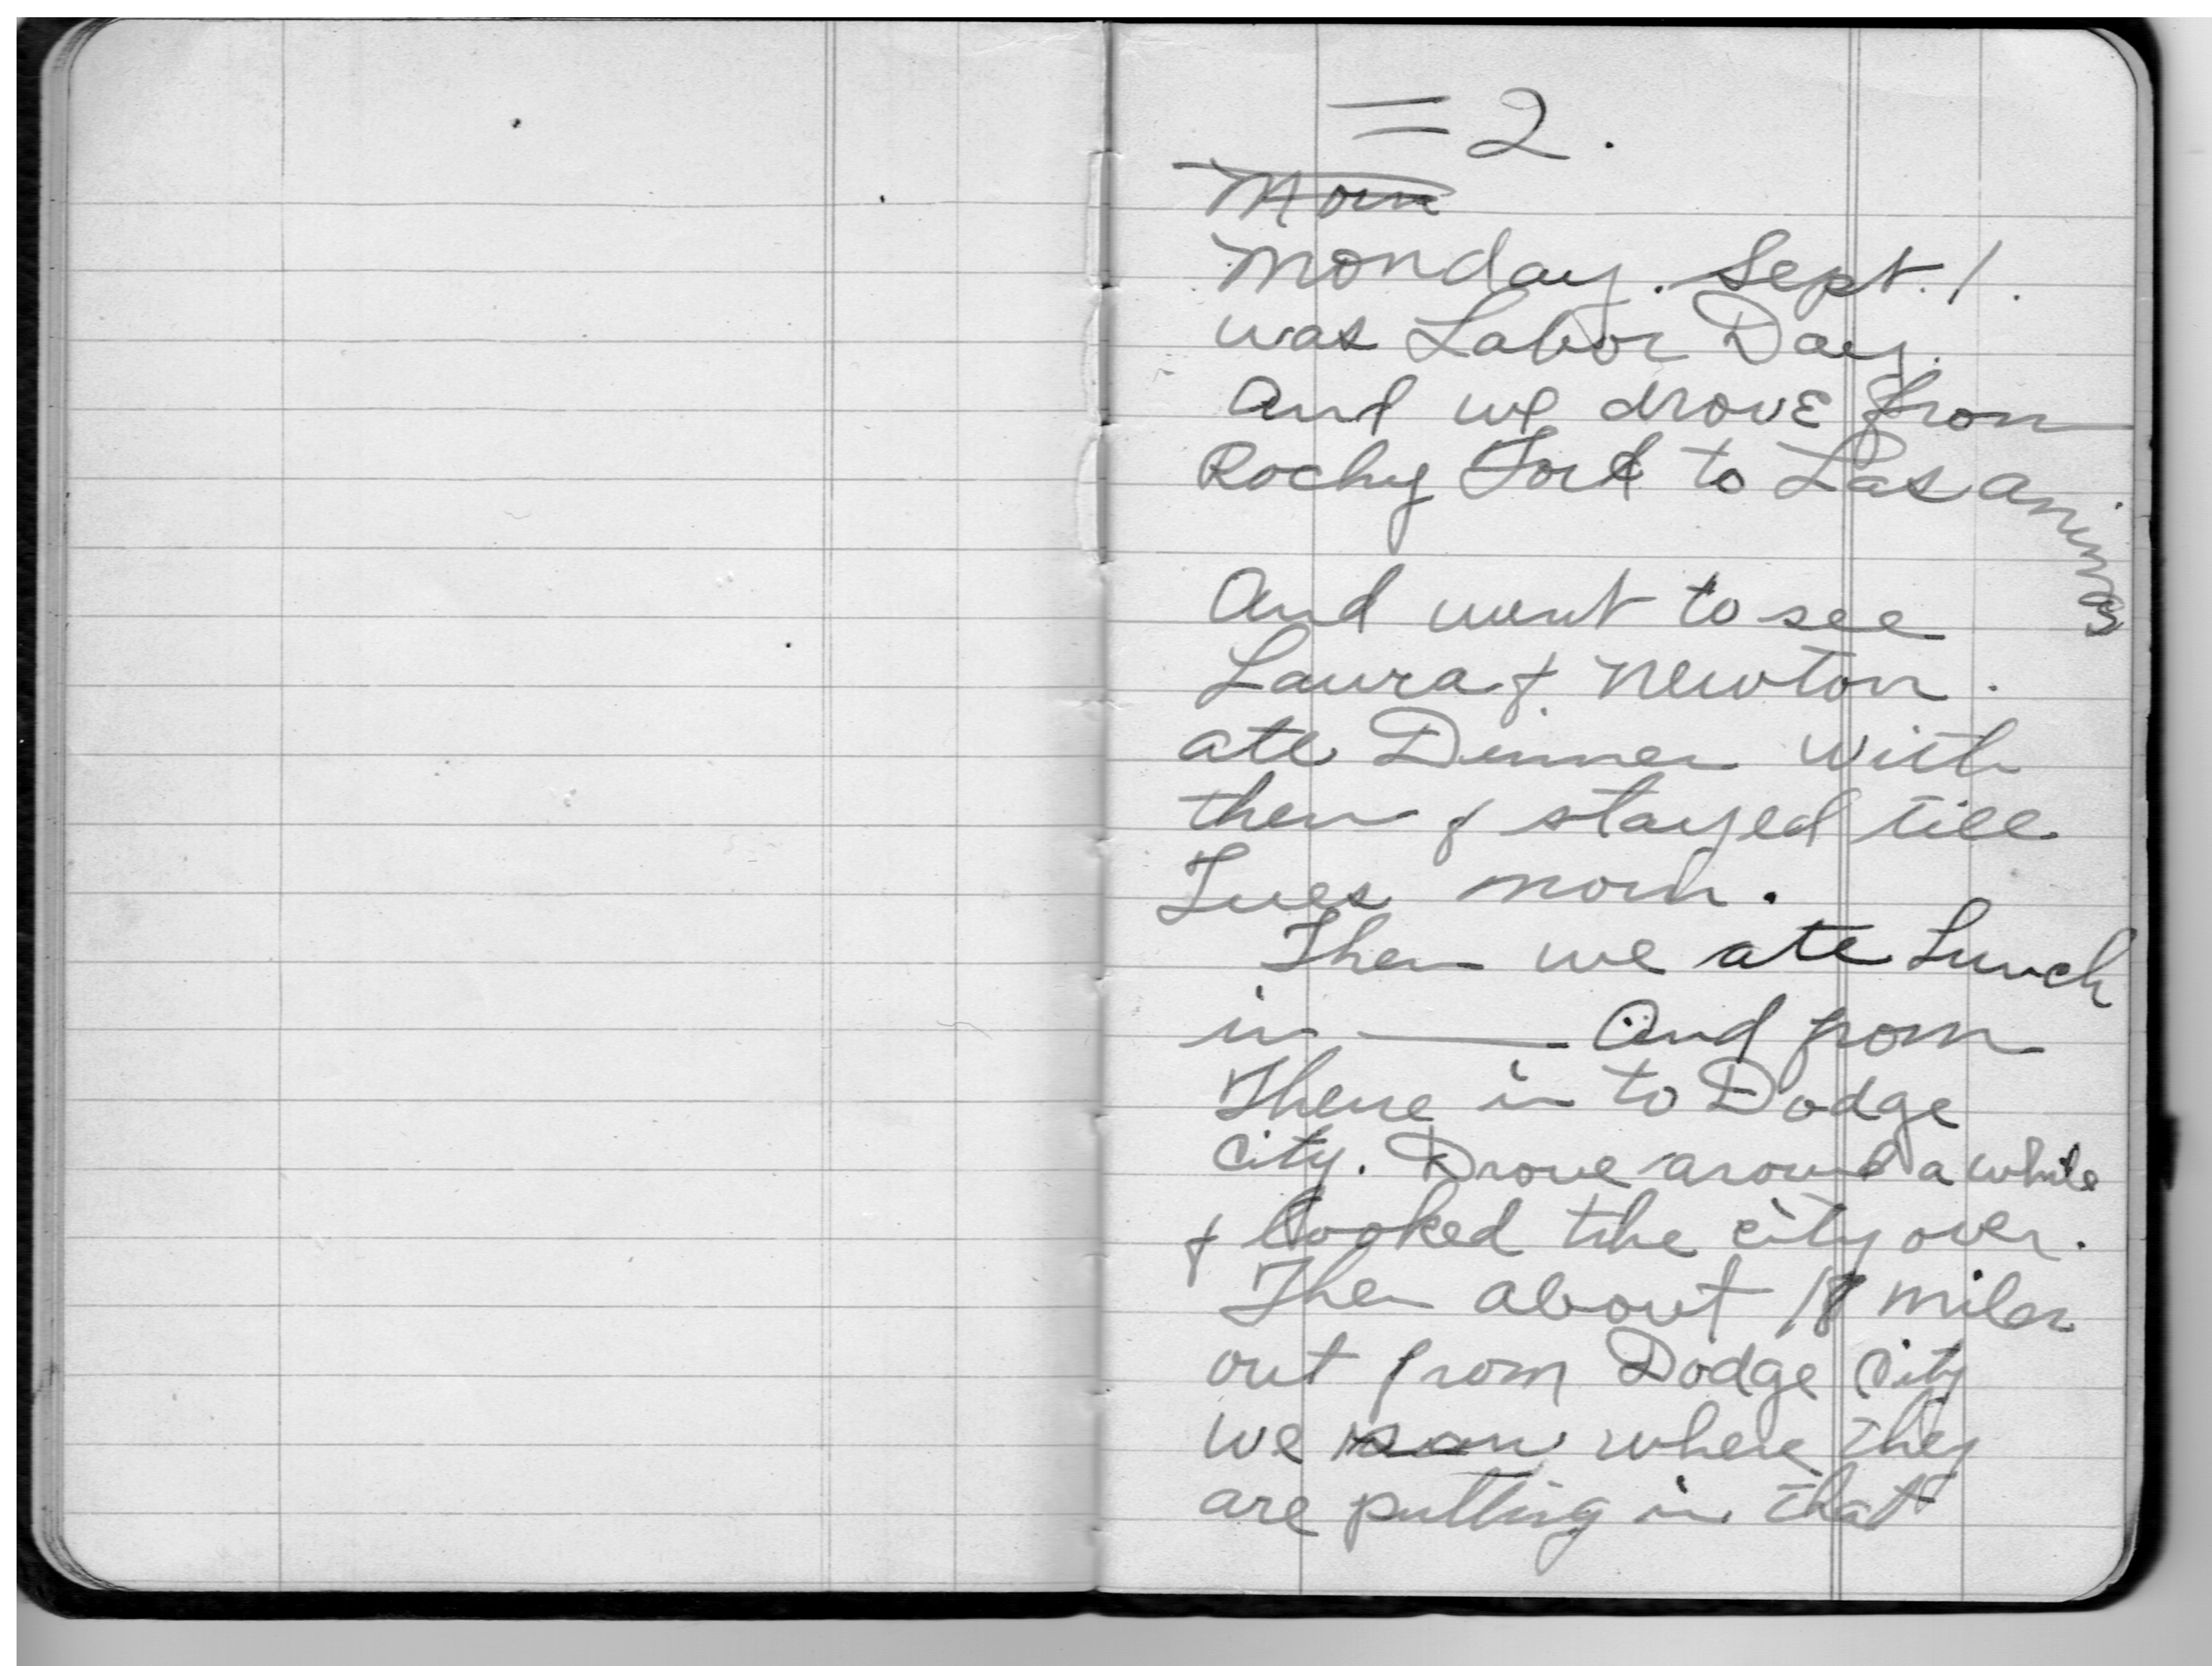 = 2.
Morn
Monday. Sept. 1.
was Labor Day.
And we drove from
Rocky Ford to Las Animas
And went to see
Laura & Newton.
ate Dinner with
them & stayed till
Tues morn.
Then we ate Lunch
in ——— And from
There in to Dodge
City. Drove around a while
& looked the city over.
Then about 18 miles
out from Dodge City
we saw where they
are putting in that